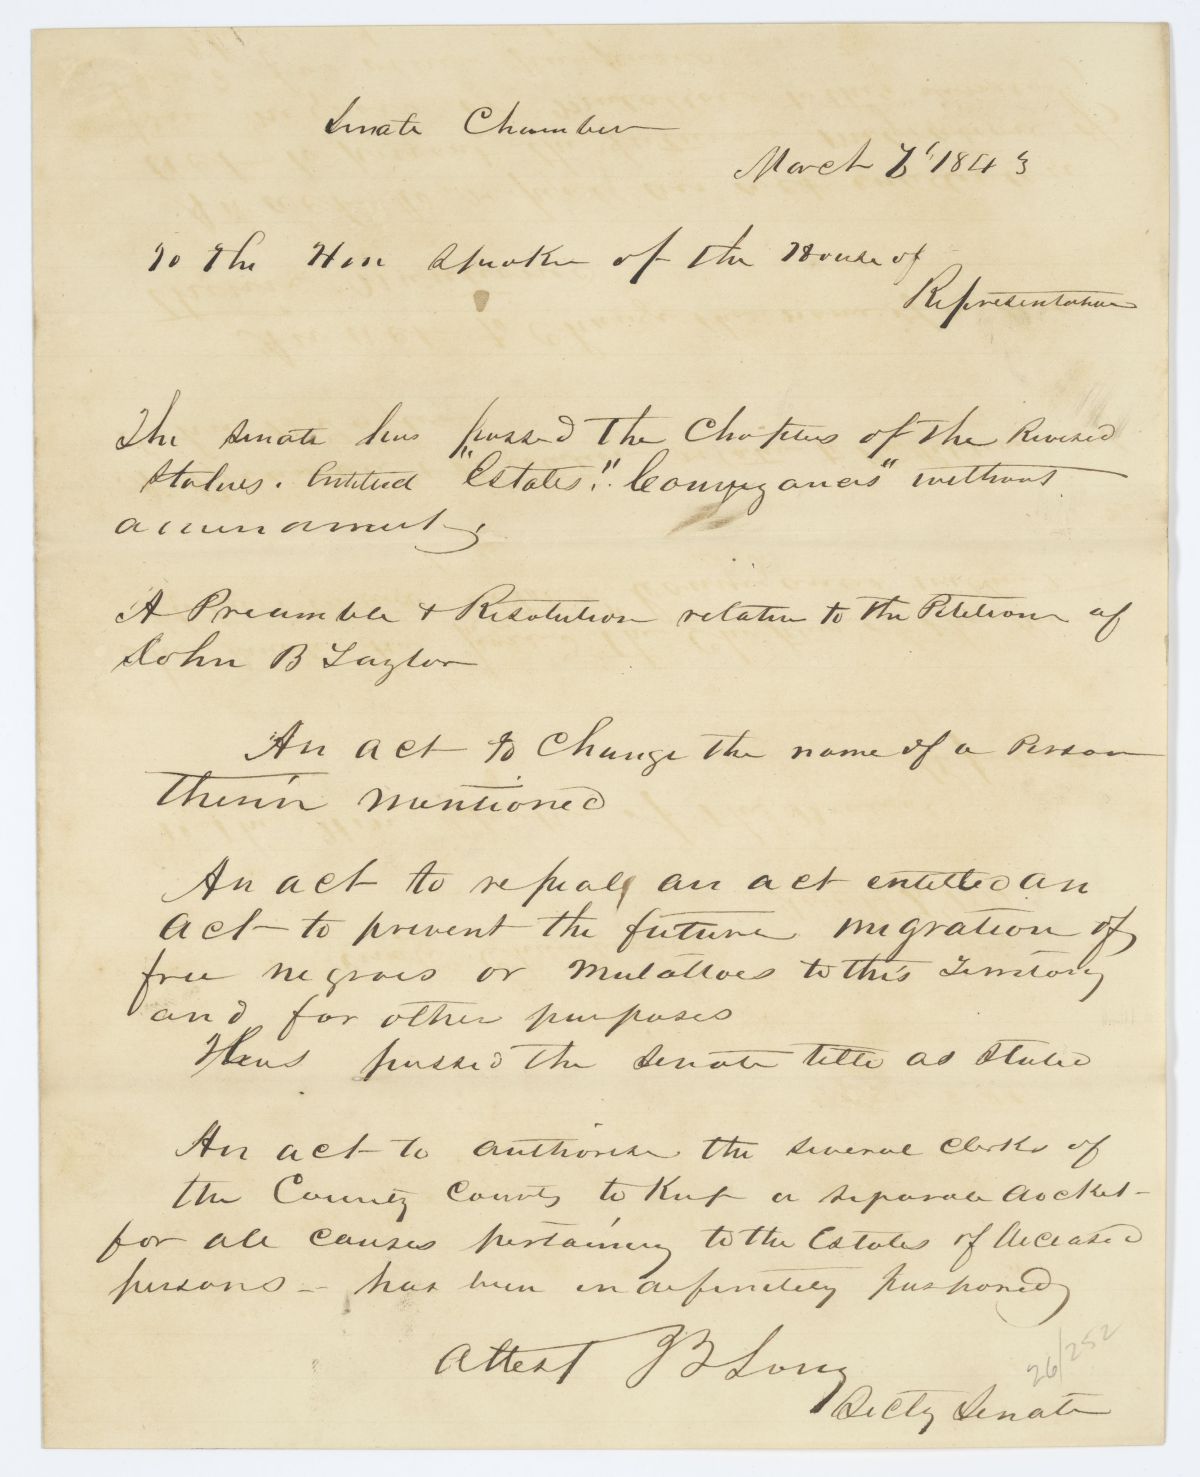 Senate Chamber
March 7' 1843
To the Hon Speaker of the House of
Representatives
The Senate has passed the Chapters of the Revised
Statues. Entitled "Estates," "Conveyances" without
amendment,
A Preamble & Resolution relative to the Petition of
John B Taylor
An act to Change the name of a Person
therein mentioned
An act to repeal an act entitled an
act to prevent the future migration of
free negroes or Mulattoes to this Territory
and for other purposes
Has passed the Senate title as stated
An act to authorise the several Clerks of
the County Courts to Keep a separate docket
for all causes pertaining to the Estates of deceased
persons – has been indefinitely postponed
Attest JB Long
Secty Senate
26/252